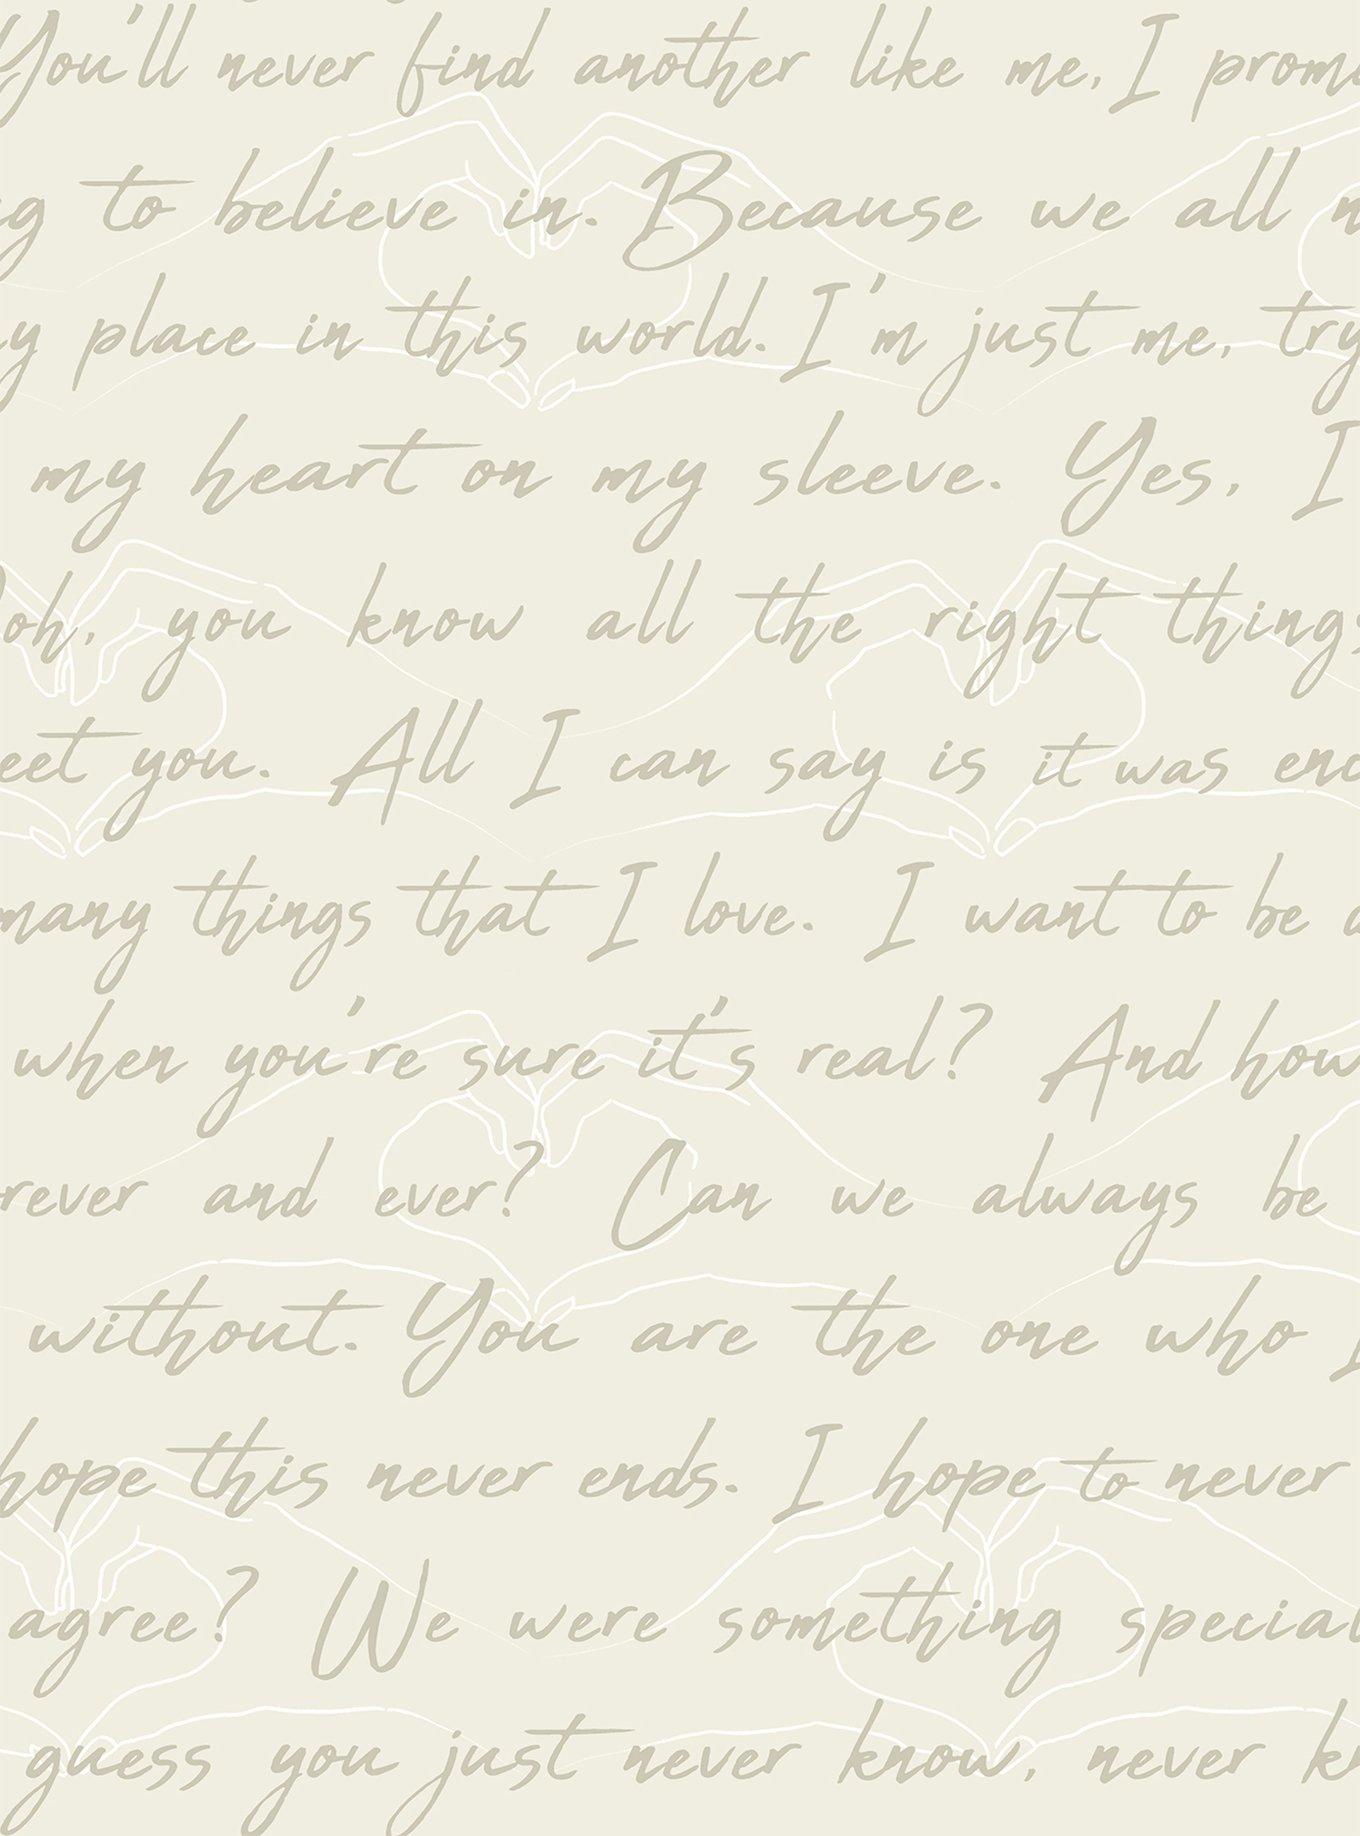 You'll never find another like me, I prom
to believe in. Because we all
place in this world. I'm just me, try
my heart on my sleeve. Yes, I
oh, you know all the right things
eet you. All I can say is it was enc
many things that I love. I want to be
when you're sure it's real? And how
rever and ever? Can we always be
without. You are the one who I
hope this never ends. I hope to never
agree? We were something special
guess you just never know, never k